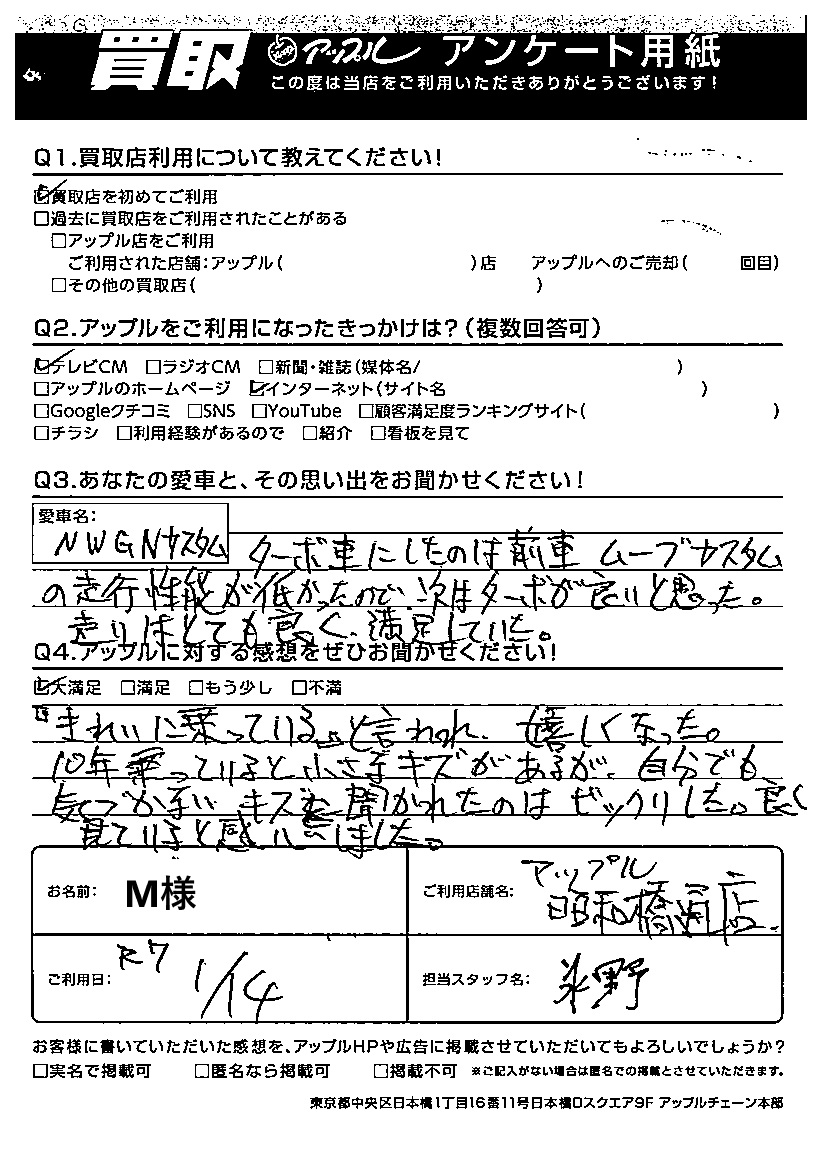 買取 アップル アンケート用紙
この度は当店をご利用いただきありがとうございます!
Q1.買取店利用について教えてください!
☑買取店を初めてご利用
□過去に買取店をご利用されたことがある
□アップル店をご利用
ご利用された店舗:アップル( )店 アップルへのご売却( 回目)
□その他の買取店( )
Q2.アップルをご利用になったきっかけは?(複数回答可)
☑テレビCM □ラジオCM □新聞・雑誌(媒体名/ )
□アップルのホームページ ☑インターネット(サイト名 )
□Googleクチコミ □SNS □YouTube □顧客満足度ランキングサイト( )
□チラシ □利用経験があるので □紹介 □看板を見て
Q3.あなたの愛車と、その思い出をお聞かせください!
愛車名:
NWGNカスタム ターボ車にしたのは前車 ムーブカスタム
の走行性能が低かったので、次はターボが良いと思った。
走りはとても良く、満足していた。
Q4.アップルに対する感想をぜひお聞かせください!
☑大満足 □満足 □もう少し □不満
きれいに乗っている。と言われ、嬉しくなった。
10年乗っていると小さなキズがあるが、自分でも
気づかない キズを聞かれたのはビックリした。良く
見ていると感心しました。
お名前: M様 ご利用店舗名: アップル
昭和橋通店
ご利用日: R7 1/14 担当スタッフ名: 氷野
お客様に書いていただいた感想を、アップルHPや広告に掲載させていただいてもよろしいでしょうか?
□実名で掲載可 □匿名なら掲載可 □掲載不可 ※ご記入がない場合は匿名での掲載とさせていただきます。
東京都中央区日本橋1丁目16番11号日本橋Dスクエア9F アップルチェーン本部